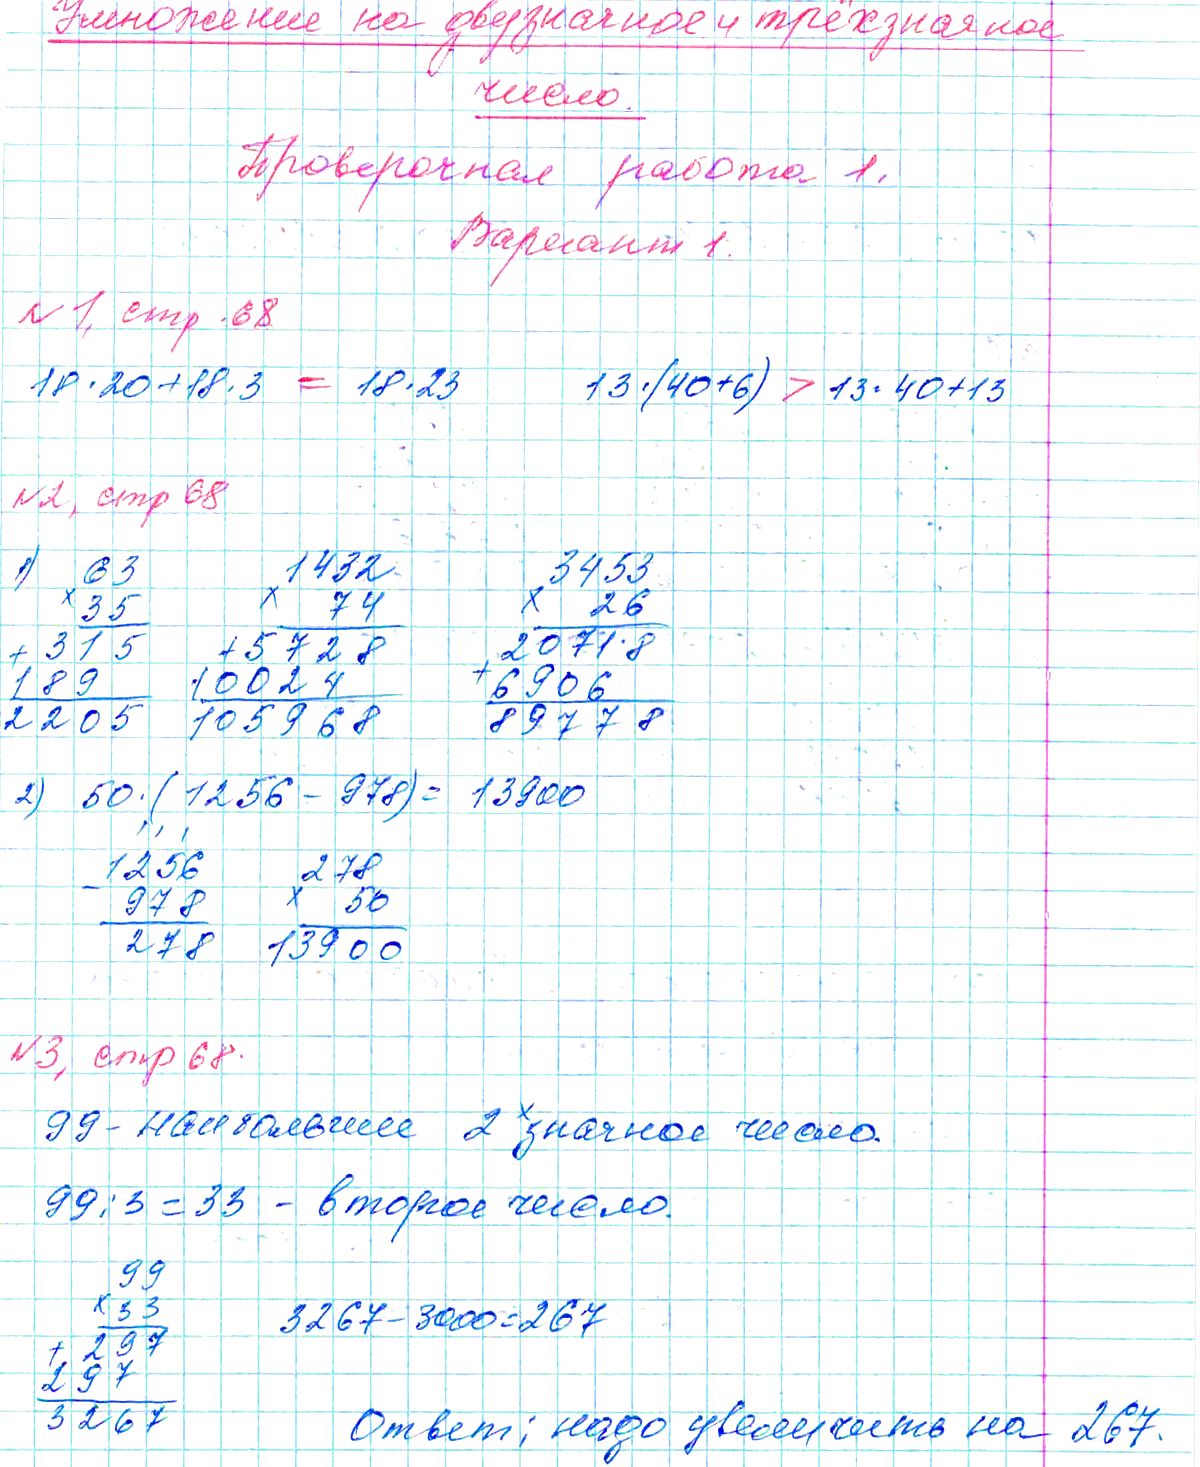 Умножение на двузначное и трёхзначное
число.
Проверочная работа 1.
Вариант 1.
№1, стр. 68
18·20+18·3 = 18·23 13·(40+6) > 13·40+13
№2, стр 68
1) 63 1432 3453
× 35 × 74 × 26
+ 315 +5728 20718
189 10024 + 6906
2205 105968 89778
2) 50·(1256-978)= 13900
1256 278
- 978 × 50
278 13900
№3, стр 68.
99 - наибольшее 2хзначное число.
99:3=33 - второе число.
99
× 33 3267-3000=267
+ 297
297
3267 Ответ: надо увеличить на 267.